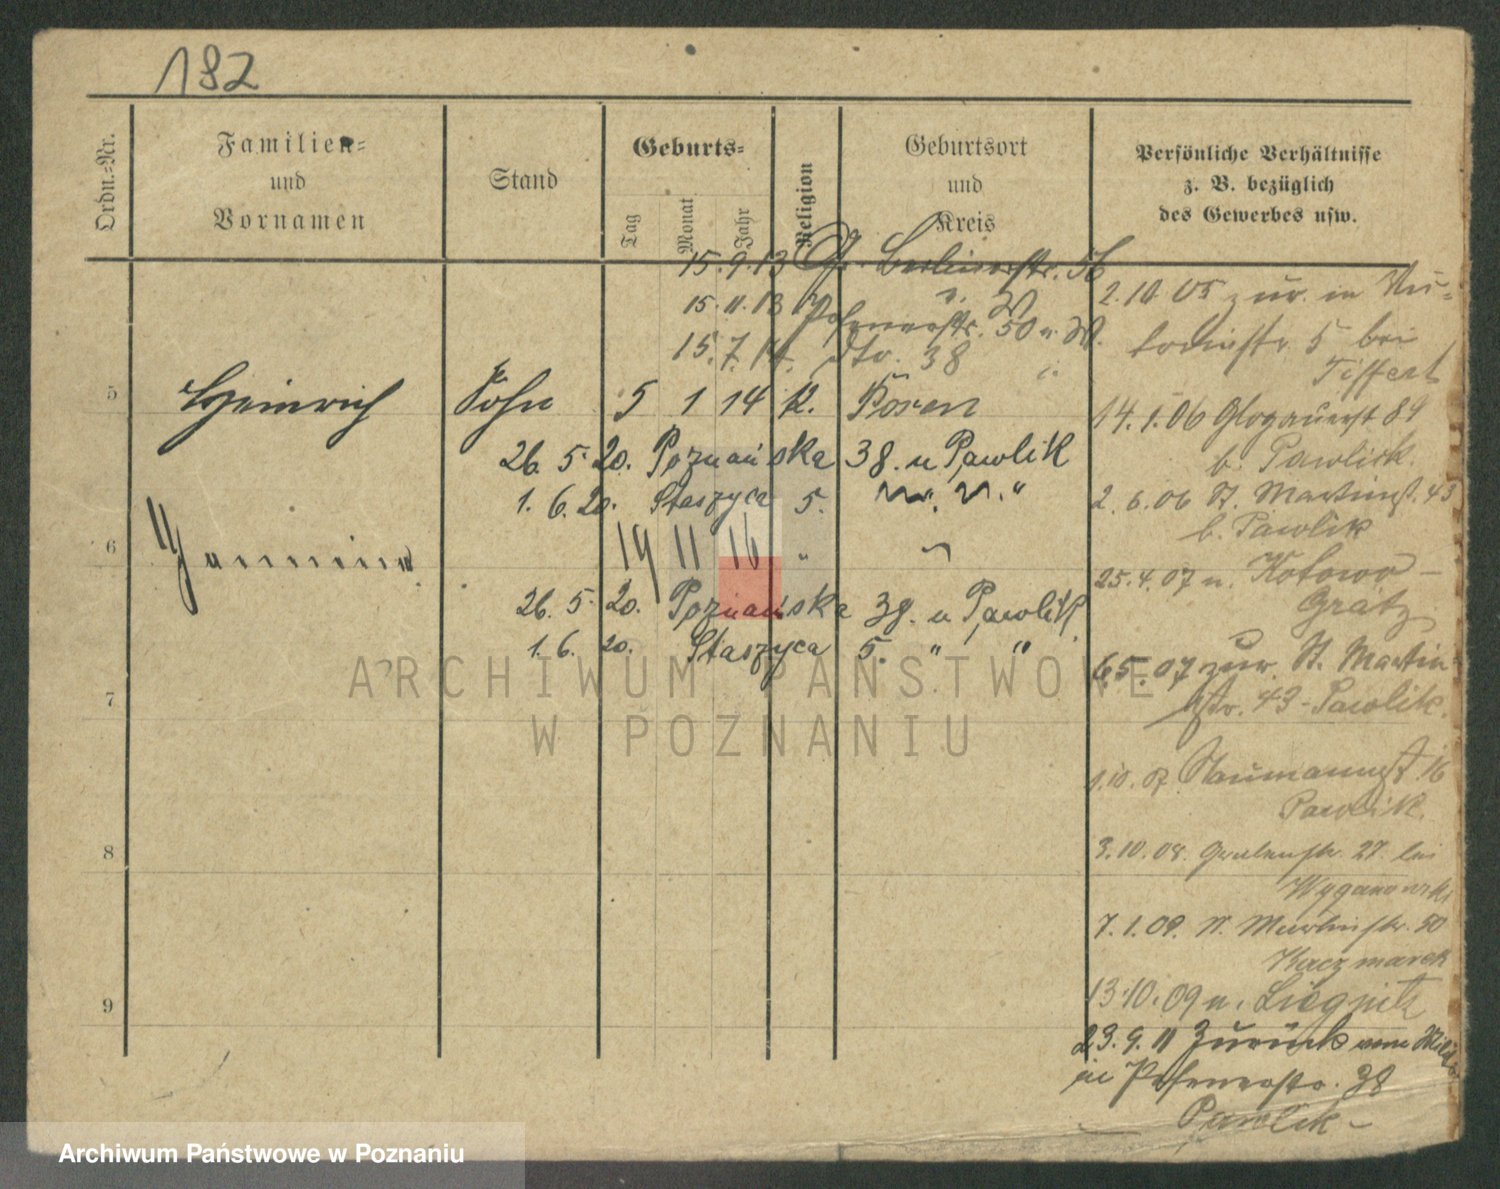 182
Ordn.-Nr.
Familien-
und
Vornamen
Stand
Geburts-
Tag
Monat
Jahr
Religion
Geburtsort
und
Kreis
Persönliche Verhältnisse
z. B. bezüglich
des Gewerbes usw.
15.9.13 Gr. Berlinerstr. 56
15.11.13 Posenerstr. 50 u. W.
15.7.14. dto. 38 "
5 Heinrich Sohn 5 1 14 K. Posen
26. 5. 20. Poznańska 38. u Pawlik
1. 6. 20. Staszyca 5.
6 19 11 16 "
26. 5. 20. Poznańska 38. u Pawlik
1. 6. 20. Staszyca 5. " "
7
8
9
2.10.05 zur. in
5 bei
Tiffert
14.1.06 Glogauerst 89
b. Pawlick.
2.6.06 St. Martinst. 43
b. Pawlik
25.4.07 n. Kotowo –
Grätz
6.5.07 zur. St. Martin
str. 43 - Pawlik.
1.10.07 Naumannst. 16
Pawlik.
3.10.08. Grabenstr. 27. bei
Wyganowski
7.1.09. St. Martinstr. 50
Kaczmarek
13.10.09 n. Liegnitz
23.9.11 Zurück vom Milit
in Posenerstr. 38
Pawlik –
ARCHIWUM PAŃSTWOWE
W POZNANIU
Archiwum Państwowe w Poznaniu